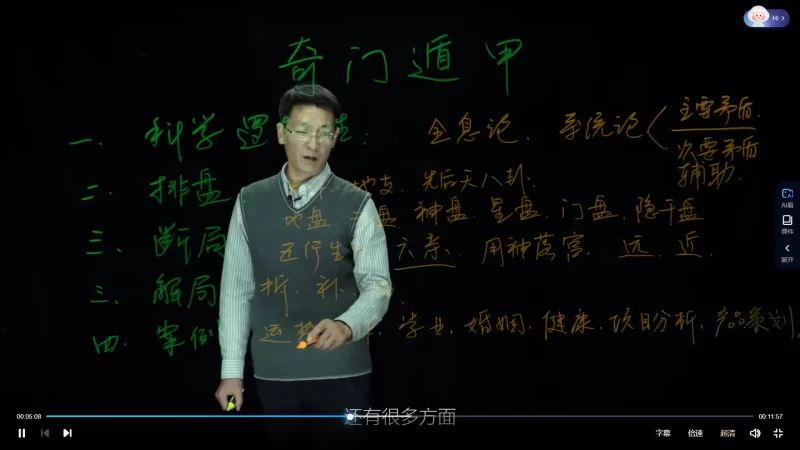 Hi >
奇门遁甲
一、科学逻 性：全息论、系统论 主要矛盾.
次要矛盾
辅助.
二、排盘 地支、先后天八卦.
地盘、 盘、神盘、星盘、门盘、隐干盘
三、断局 五行生 六亲、用神落宫. 远、近.
三、解局 拆、补、
四、案例 运 学业、婚姻、健康、项目分析、产品策划、
AI看
课件
展开
还有很多方面
00:05:08
00:11:57
字幕 倍速 超清